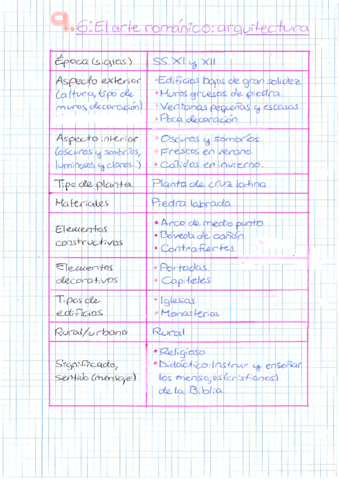 9.6: El arte románico: arquitectura
Época (siglos)
SS. XI y XII
Aspecto exterior
(altura, tipo de
muros, decoración)
• Edificios bajos de gran solidez
• Muros gruesos de piedra
• Ventanas pequeñas y escasas
• Poca decoración
Aspecto interior
(oscuros y sombríos,
luminosos y claros...)
• Oscuros y sombríos
• Frescos en verano
• Cálidos en invierno.
Tipo de planta
Planta de cruz latina
Materiales
Piedra labrada
Elementos
constructivos
• Arco de medio punto
• Bóveda de cañón
• Contrafuertes
Elementos
decorativos
• Portadas
• Capiteles
Tipos de
edificios
• Iglesias
• Monasterios
Rural/urbano
Rural
Significado,
sentido (mensaje)
• Religioso
• Didáctico: Instruir y enseñar
los mensajes (cristianos)
de la Biblia